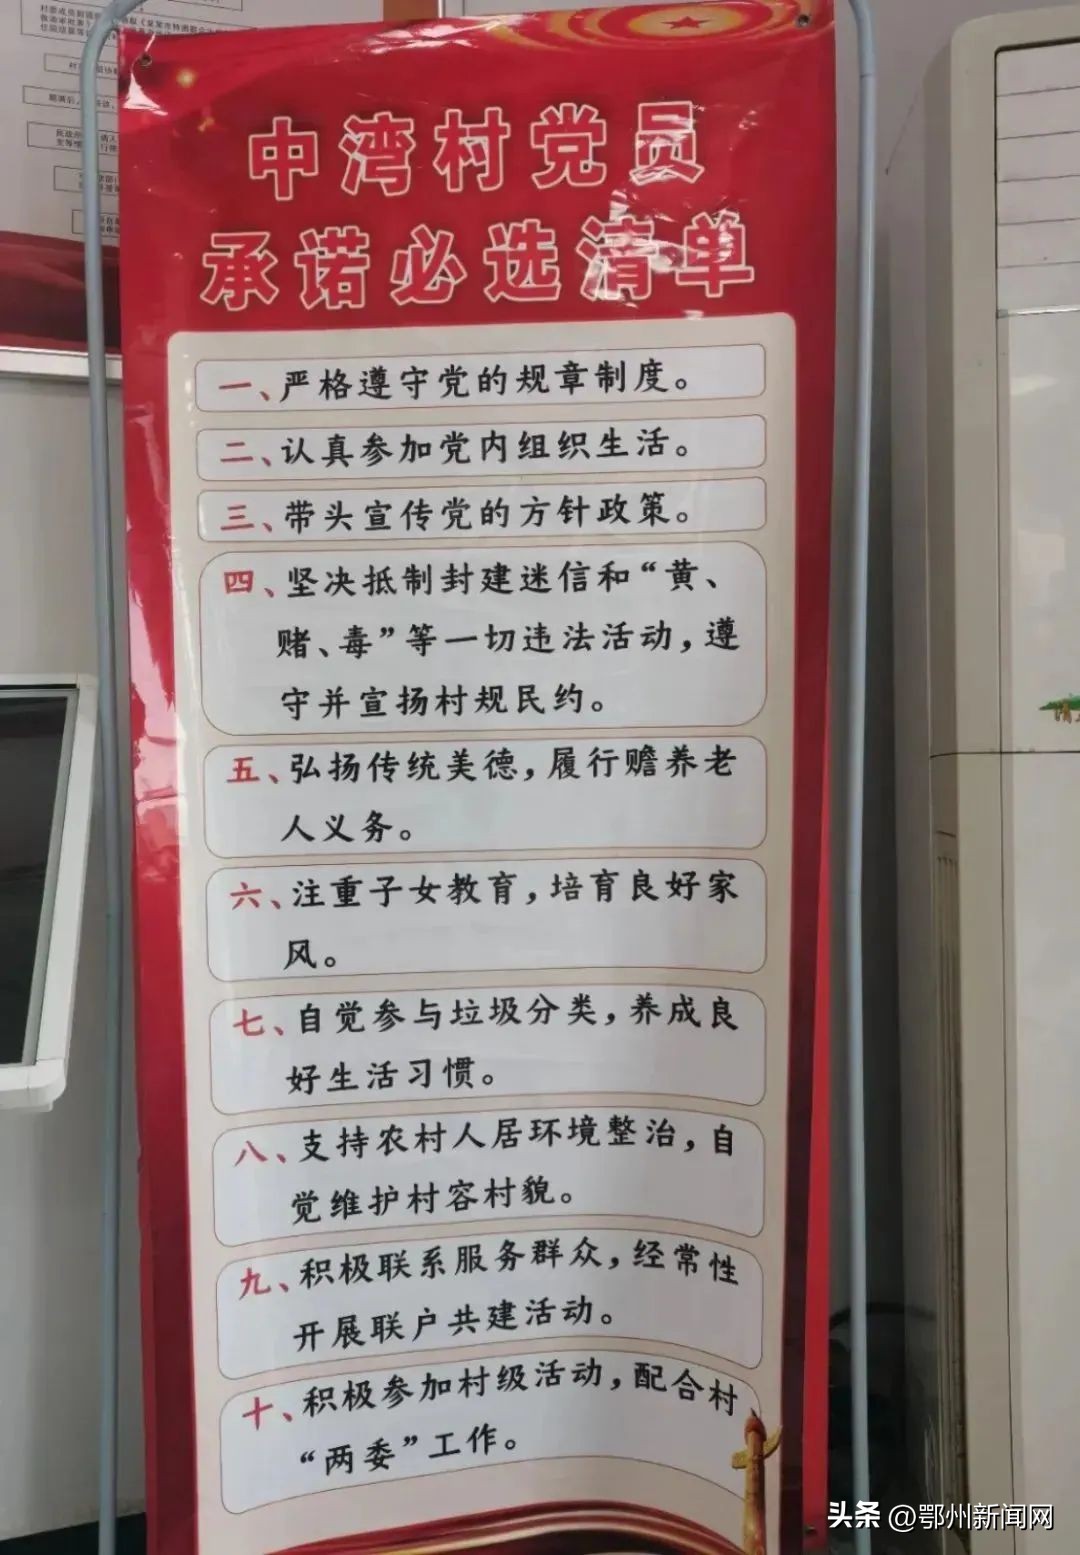 中湾村党员
承诺必选清单
一、严格遵守党的规章制度。
二、认真参加党内组织生活。
三、带头宣传党的方针政策。
四、坚决抵制封建迷信和“黄、
赌、毒”等一切违法活动，遵
守并宣扬村规民约。
五、弘扬传统美德，履行赡养老
人义务。
六、注重子女教育，培育良好家
风。
七、自觉参与垃圾分类，养成良
好生活习惯。
八、支持农村人居环境整治，自
觉维护村容村貌。
九、积极联系服务群众，经常性
开展联户共建活动。
十、积极参加村级活动，配合村
“两委”工作。
头条 @鄂州新闻网